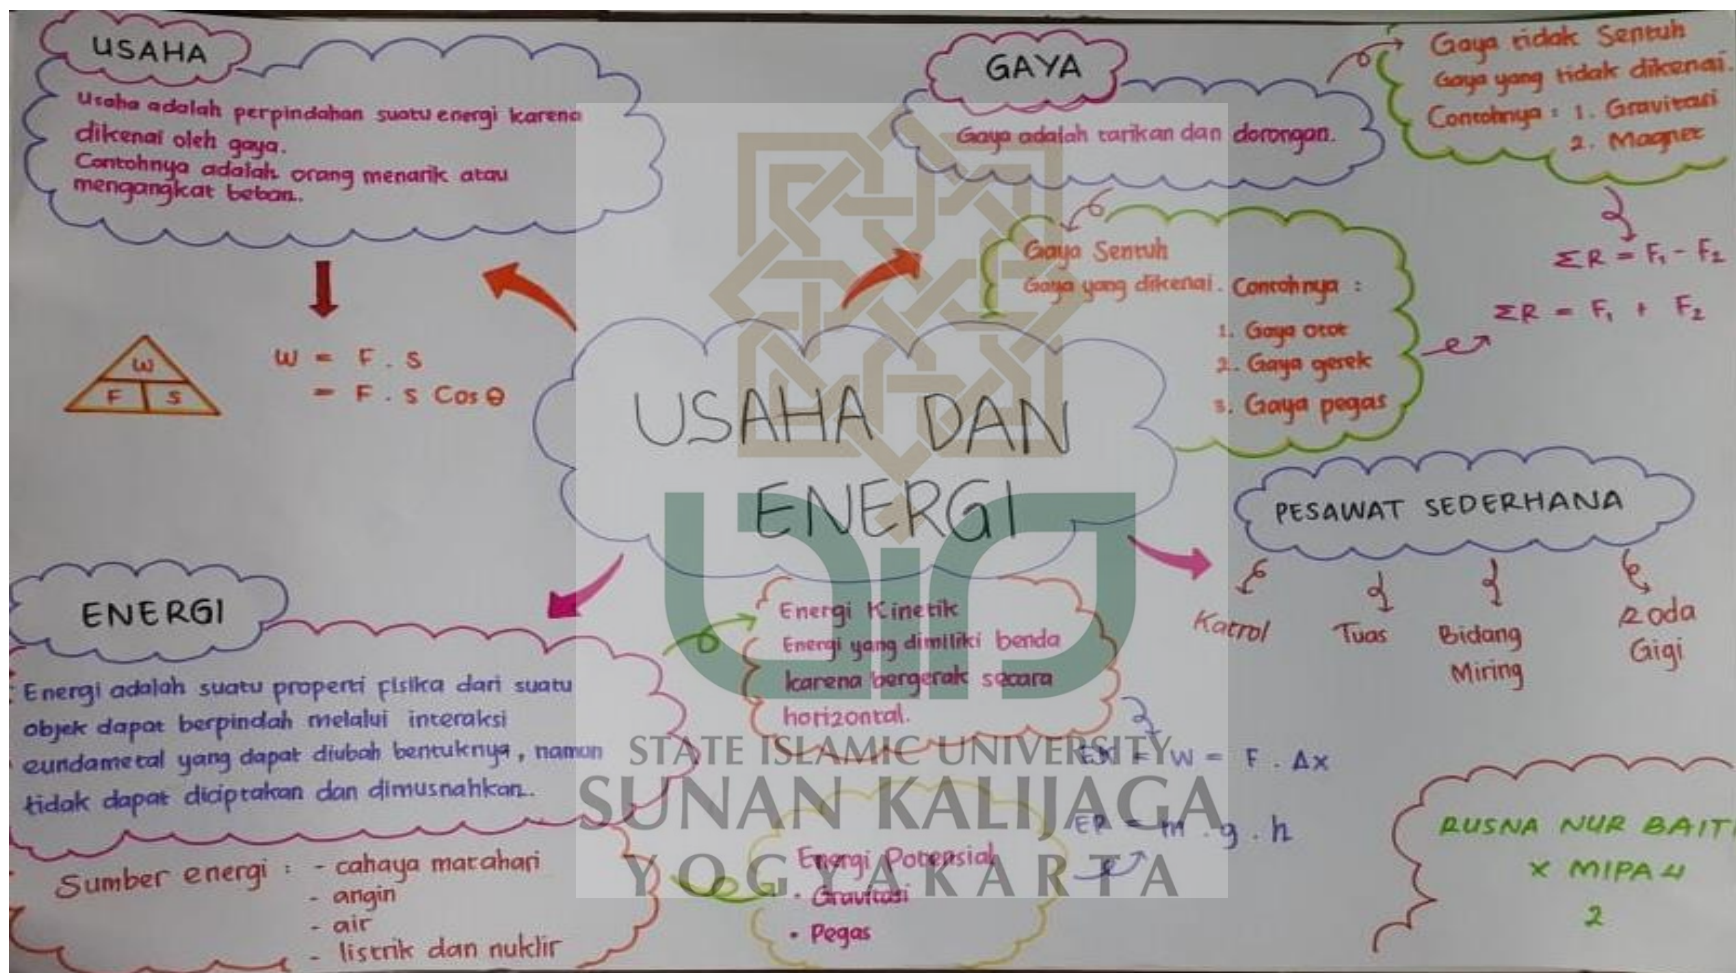 USAHA
Usaha adalah perpindahan suatu energi karena
dikenai oleh gaya.
Contohnya adalah orang menarik atau
mengangkat beban.
W
F S
W = F . S
= F . S Cos θ
GAYA
Gaya adalah tarikan dan dorongan.
Gaya tidak Sentuh
Gaya yang tidak dikenai.
Contohnya : 1. Gravitasi
2. Magnet
ΣR = F₁ - F₂
Gaya Sentuh
Gaya yang dikenai. Contohnya :
1. Gaya otot
2. Gaya gesek
3. Gaya pegas
ΣR = F₁ + F₂
USAHA DAN
ENERGI
PESAWAT SEDERHANA
Katrol
Tuas
Bidang
Miring
Roda
Gigi
ENERGI
Energi adalah suatu properti fisika dari suatu
objek dapat berpindah melalui interaksi
fundametal yang dapat diubah bentuknya, namun
tidak dapat diciptakan dan dimusnahkan.
Sumber energi : - cahaya matahari
- angin
- air
- listrik dan nuklir
Energi Kinetik
Energi yang dimiliki benda
karena bergerak secara
horizontal.
= W = F . Δx
Energi Potensial
• Gravitasi
• Pegas
EP = m . g . h
RUSNA NUR BAITI
X MIPA 4
2
STATE ISLAMIC UNIVERSITY
SUNAN KALIJAGA
YOGYAKARTA